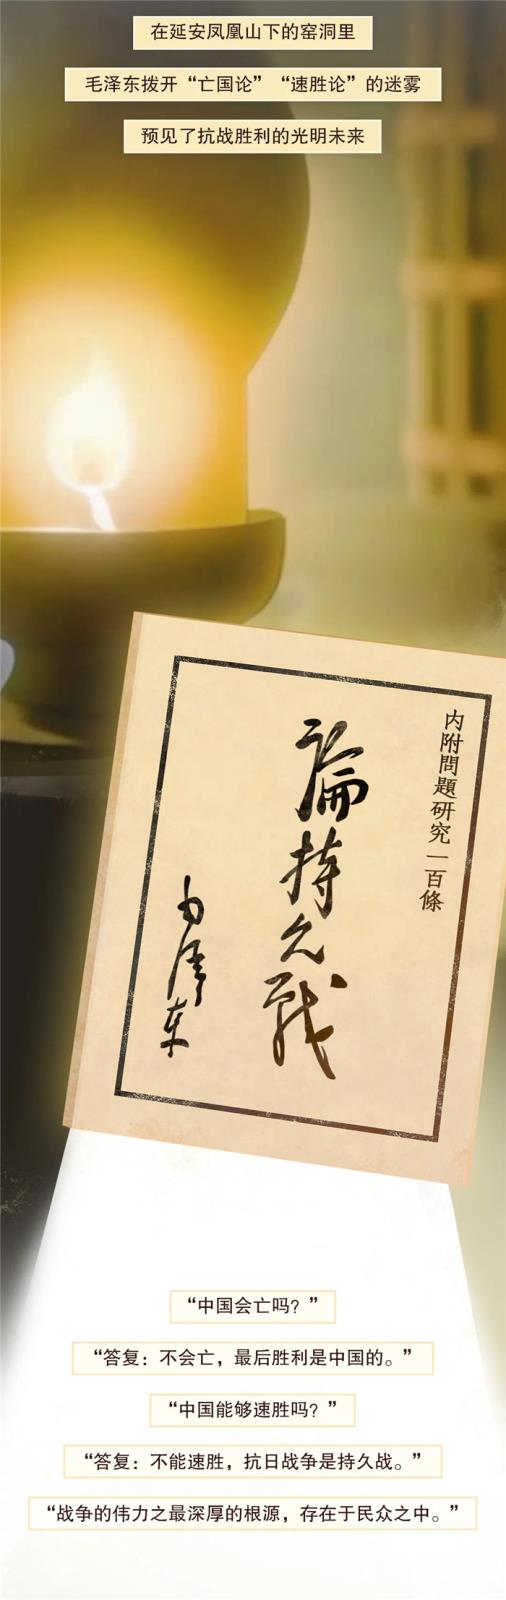 在延安凤凰山下的窑洞里
毛泽东拨开“亡国论”“速胜论”的迷雾
预见了抗战胜利的光明未来
内附問題研究一百條
論持久戰
毛澤东
“中国会亡吗？”
“答复：不会亡，最后胜利是中国的。”
“中国能够速胜吗？”
“答复：不能速胜，抗日战争是持久战。”
“战争的伟力之最深厚的根源，存在于民众之中。”